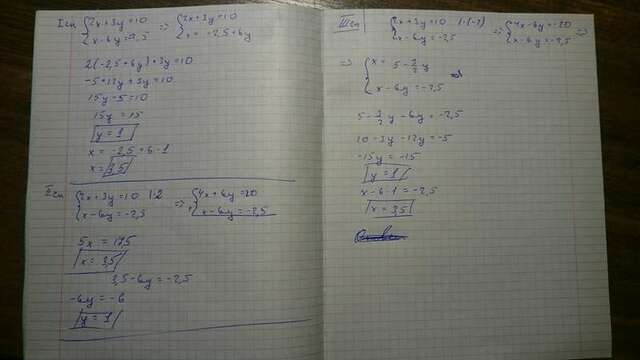 I сп. {2x+3y=10 => {2x+3y=10
{x-6y=-2,5 {x = -2,5+6y
2(-2,5+6y)+3y=10
-5+12y+3y=10
15y-5=10
15y=15
y=1
x = -2,5+6·1
x=3,5
II сп. {2x+3y=10 |·2 => {4x+6y=20
{x-6y=-2,5 {x-6y=-2,5
5x = 17,5
x=3,5
3,5-6y=-2,5
-6y=-6
y=1
III сп. {2x+3y=10 |·(-2) => {-4x-6y=-20 =>
{x-6y=-2,5 {x-6y=-2,5
=> {x = 5-3/2y =>
{x-6y=-2,5
5-3/2y-6y=-2,5
10-3y-12y=-5
-15y=-15
y=1
x-6·1=-2,5
x=3,5